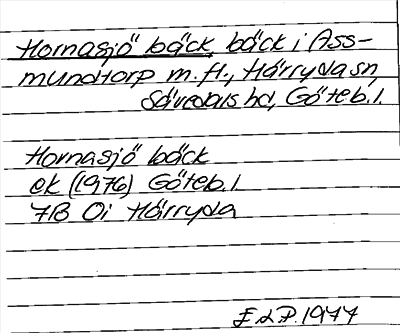 Hornasjö bäck, bäck i Ass-
mundtorp m.fl., Härryda sn,
Sävedals hd, Göteb. l.
Hornasjö bäck
ek (1976) Göteb. l
7B 0i Härryda
E.L.P. 1977